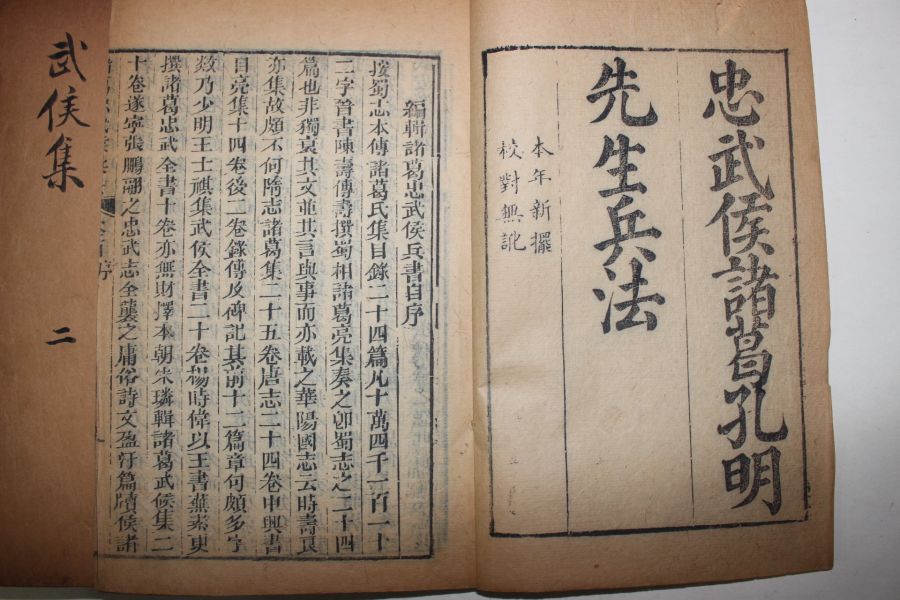 忠武侯諸葛孔明
先生兵法
本年新擺
校對無訛
編輯諸葛忠武侯兵書自序
按蜀志本傳諸葛氏集目錄二十四篇凡十萬四千一百一十
二字晉書陳壽傳壽撰蜀相諸葛亮集奏之卽蜀志之二十四
篇也非獨裒其文並其言與事而亦載之華陽國志云時壽良
亦集故頗不何隋志諸葛集二十五卷唐志二十四卷中興書
目亮集十四卷後二卷錄傳及碑記其前十二篇章句頗多字
數乃少明王士騏集武侯全書二十卷楊時偉以王書蕪累更
撰諸葛忠武全書十卷亦無財擇本朝朱璘輯諸葛武侯集二
十卷遂寧張鵬翮之忠武志全襲之庸俗詩文盈汙篇牘侯諸
武侯集
二